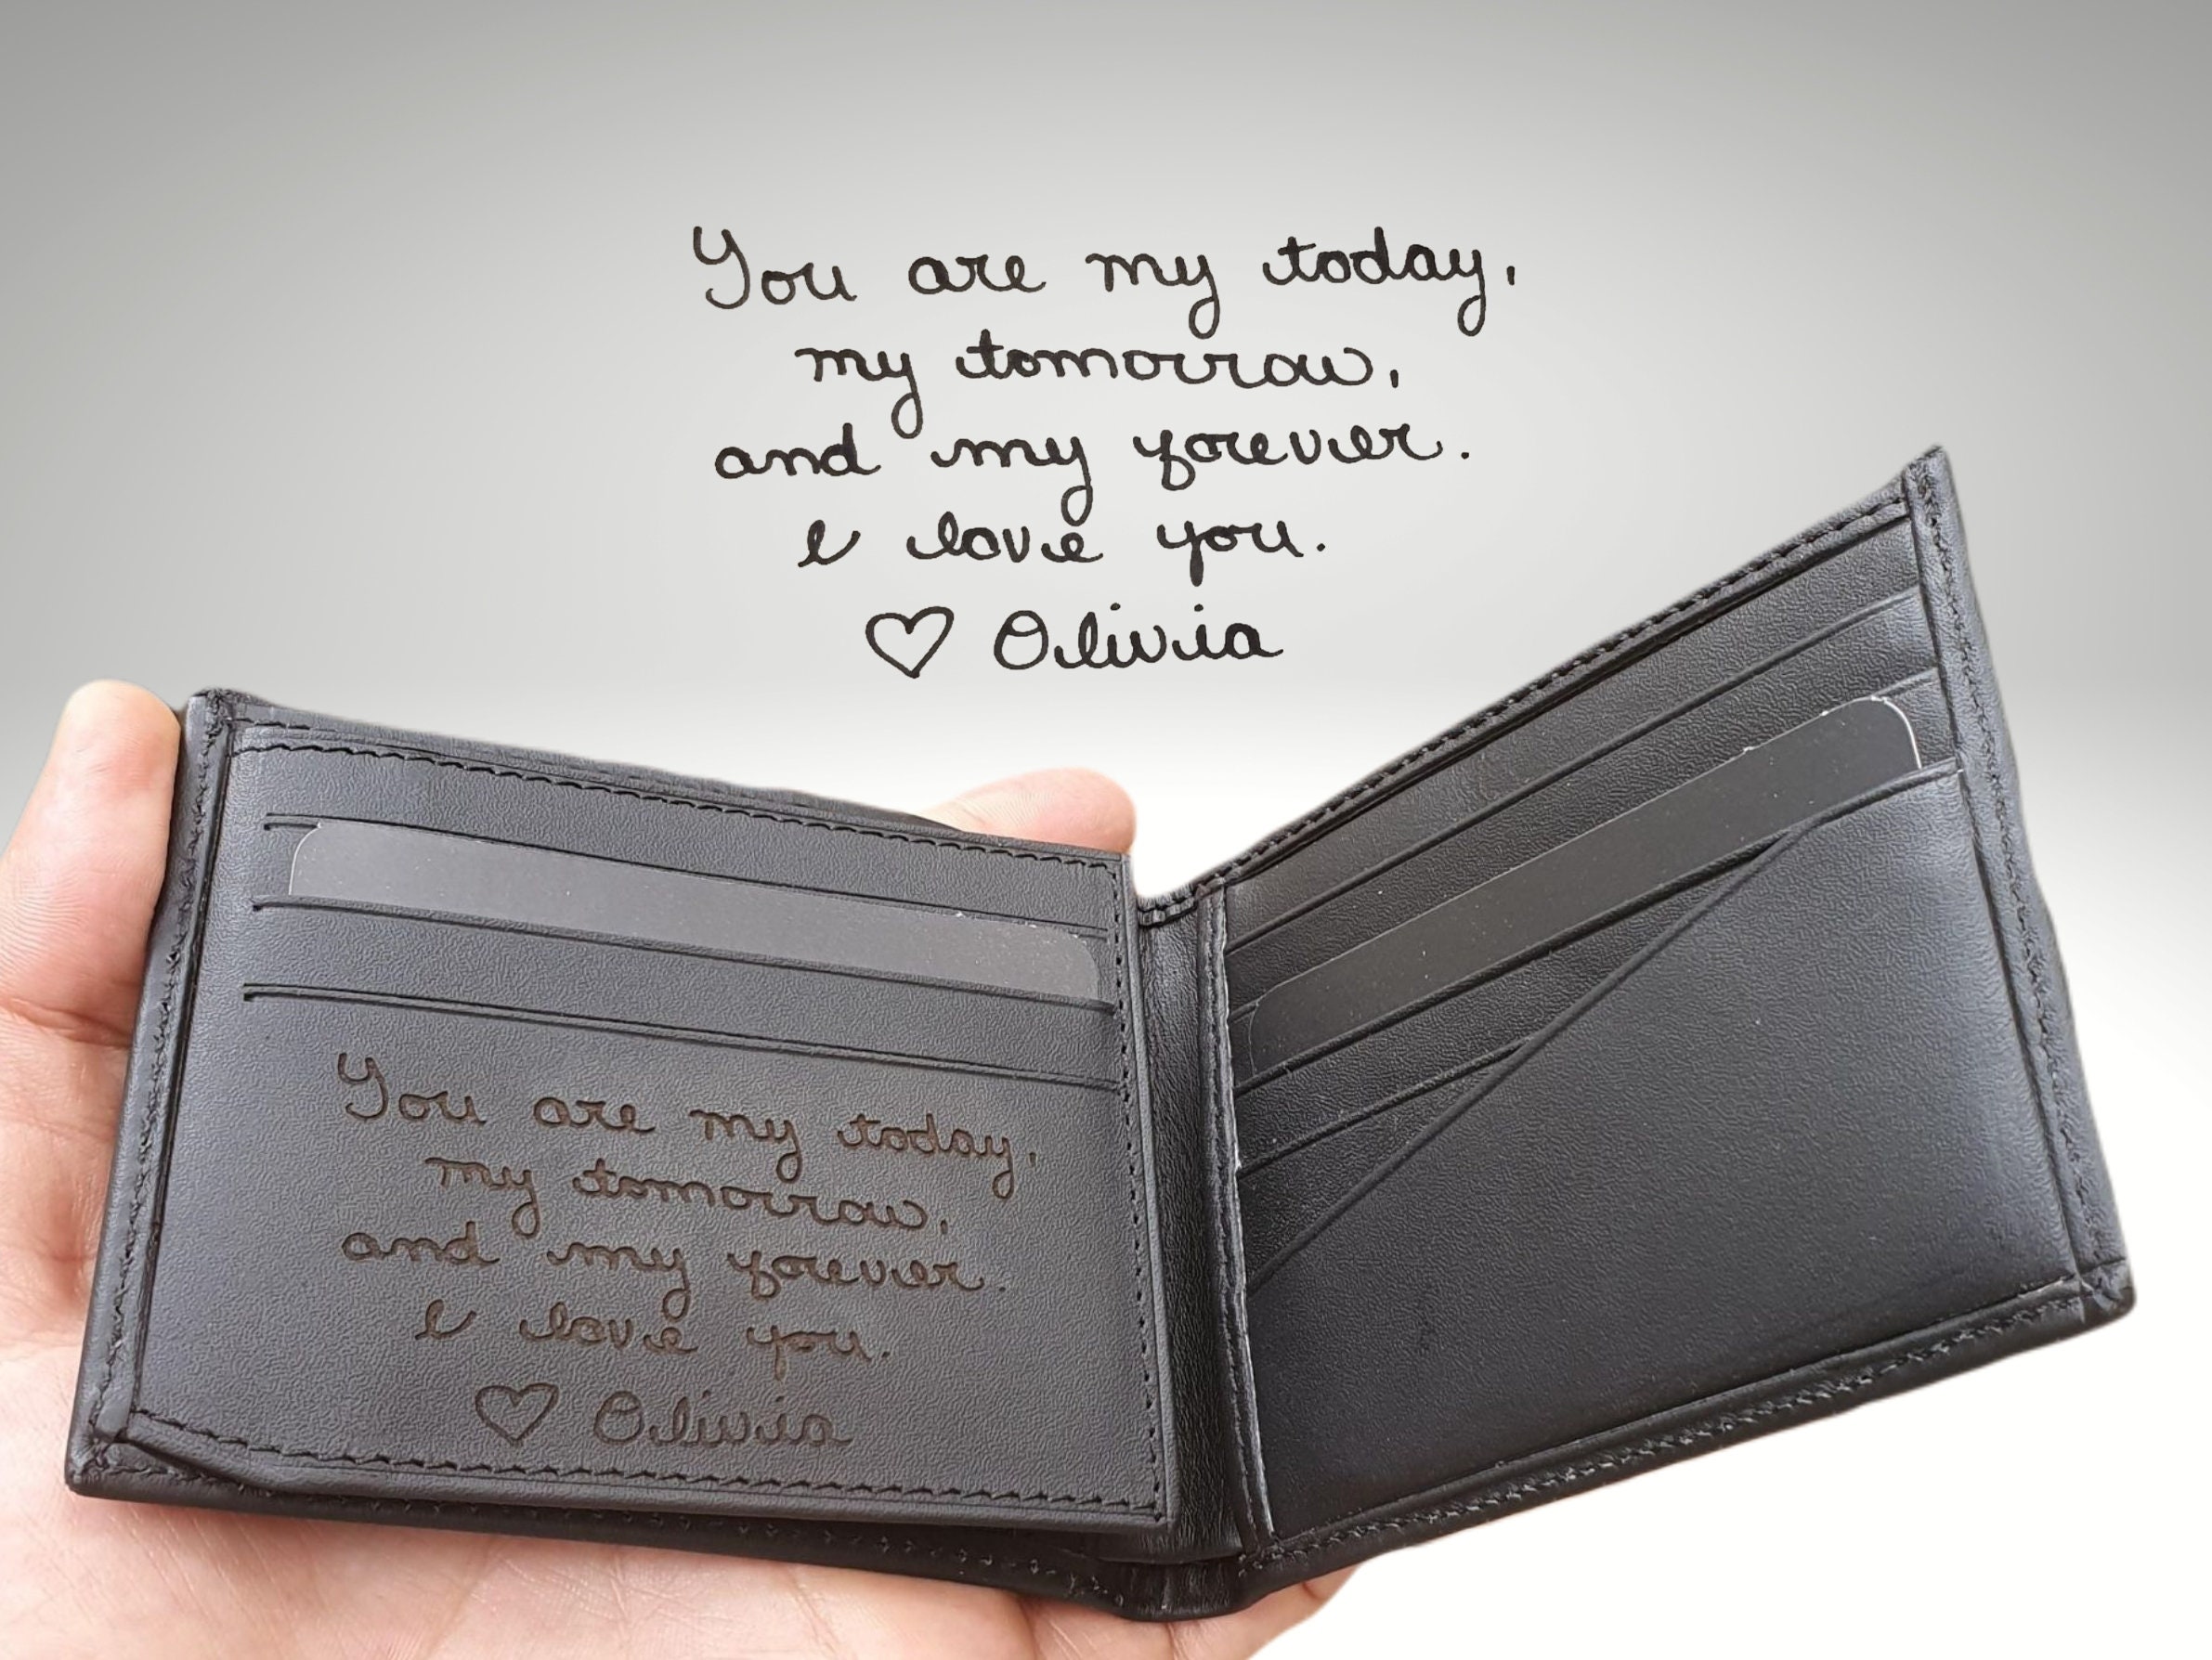 You are my today,
my tomorrow,
and my forever.
I love you.
♡ Olivia
You are my today,
my tomorrow,
and my forever.
I love you.
♡ Olivia